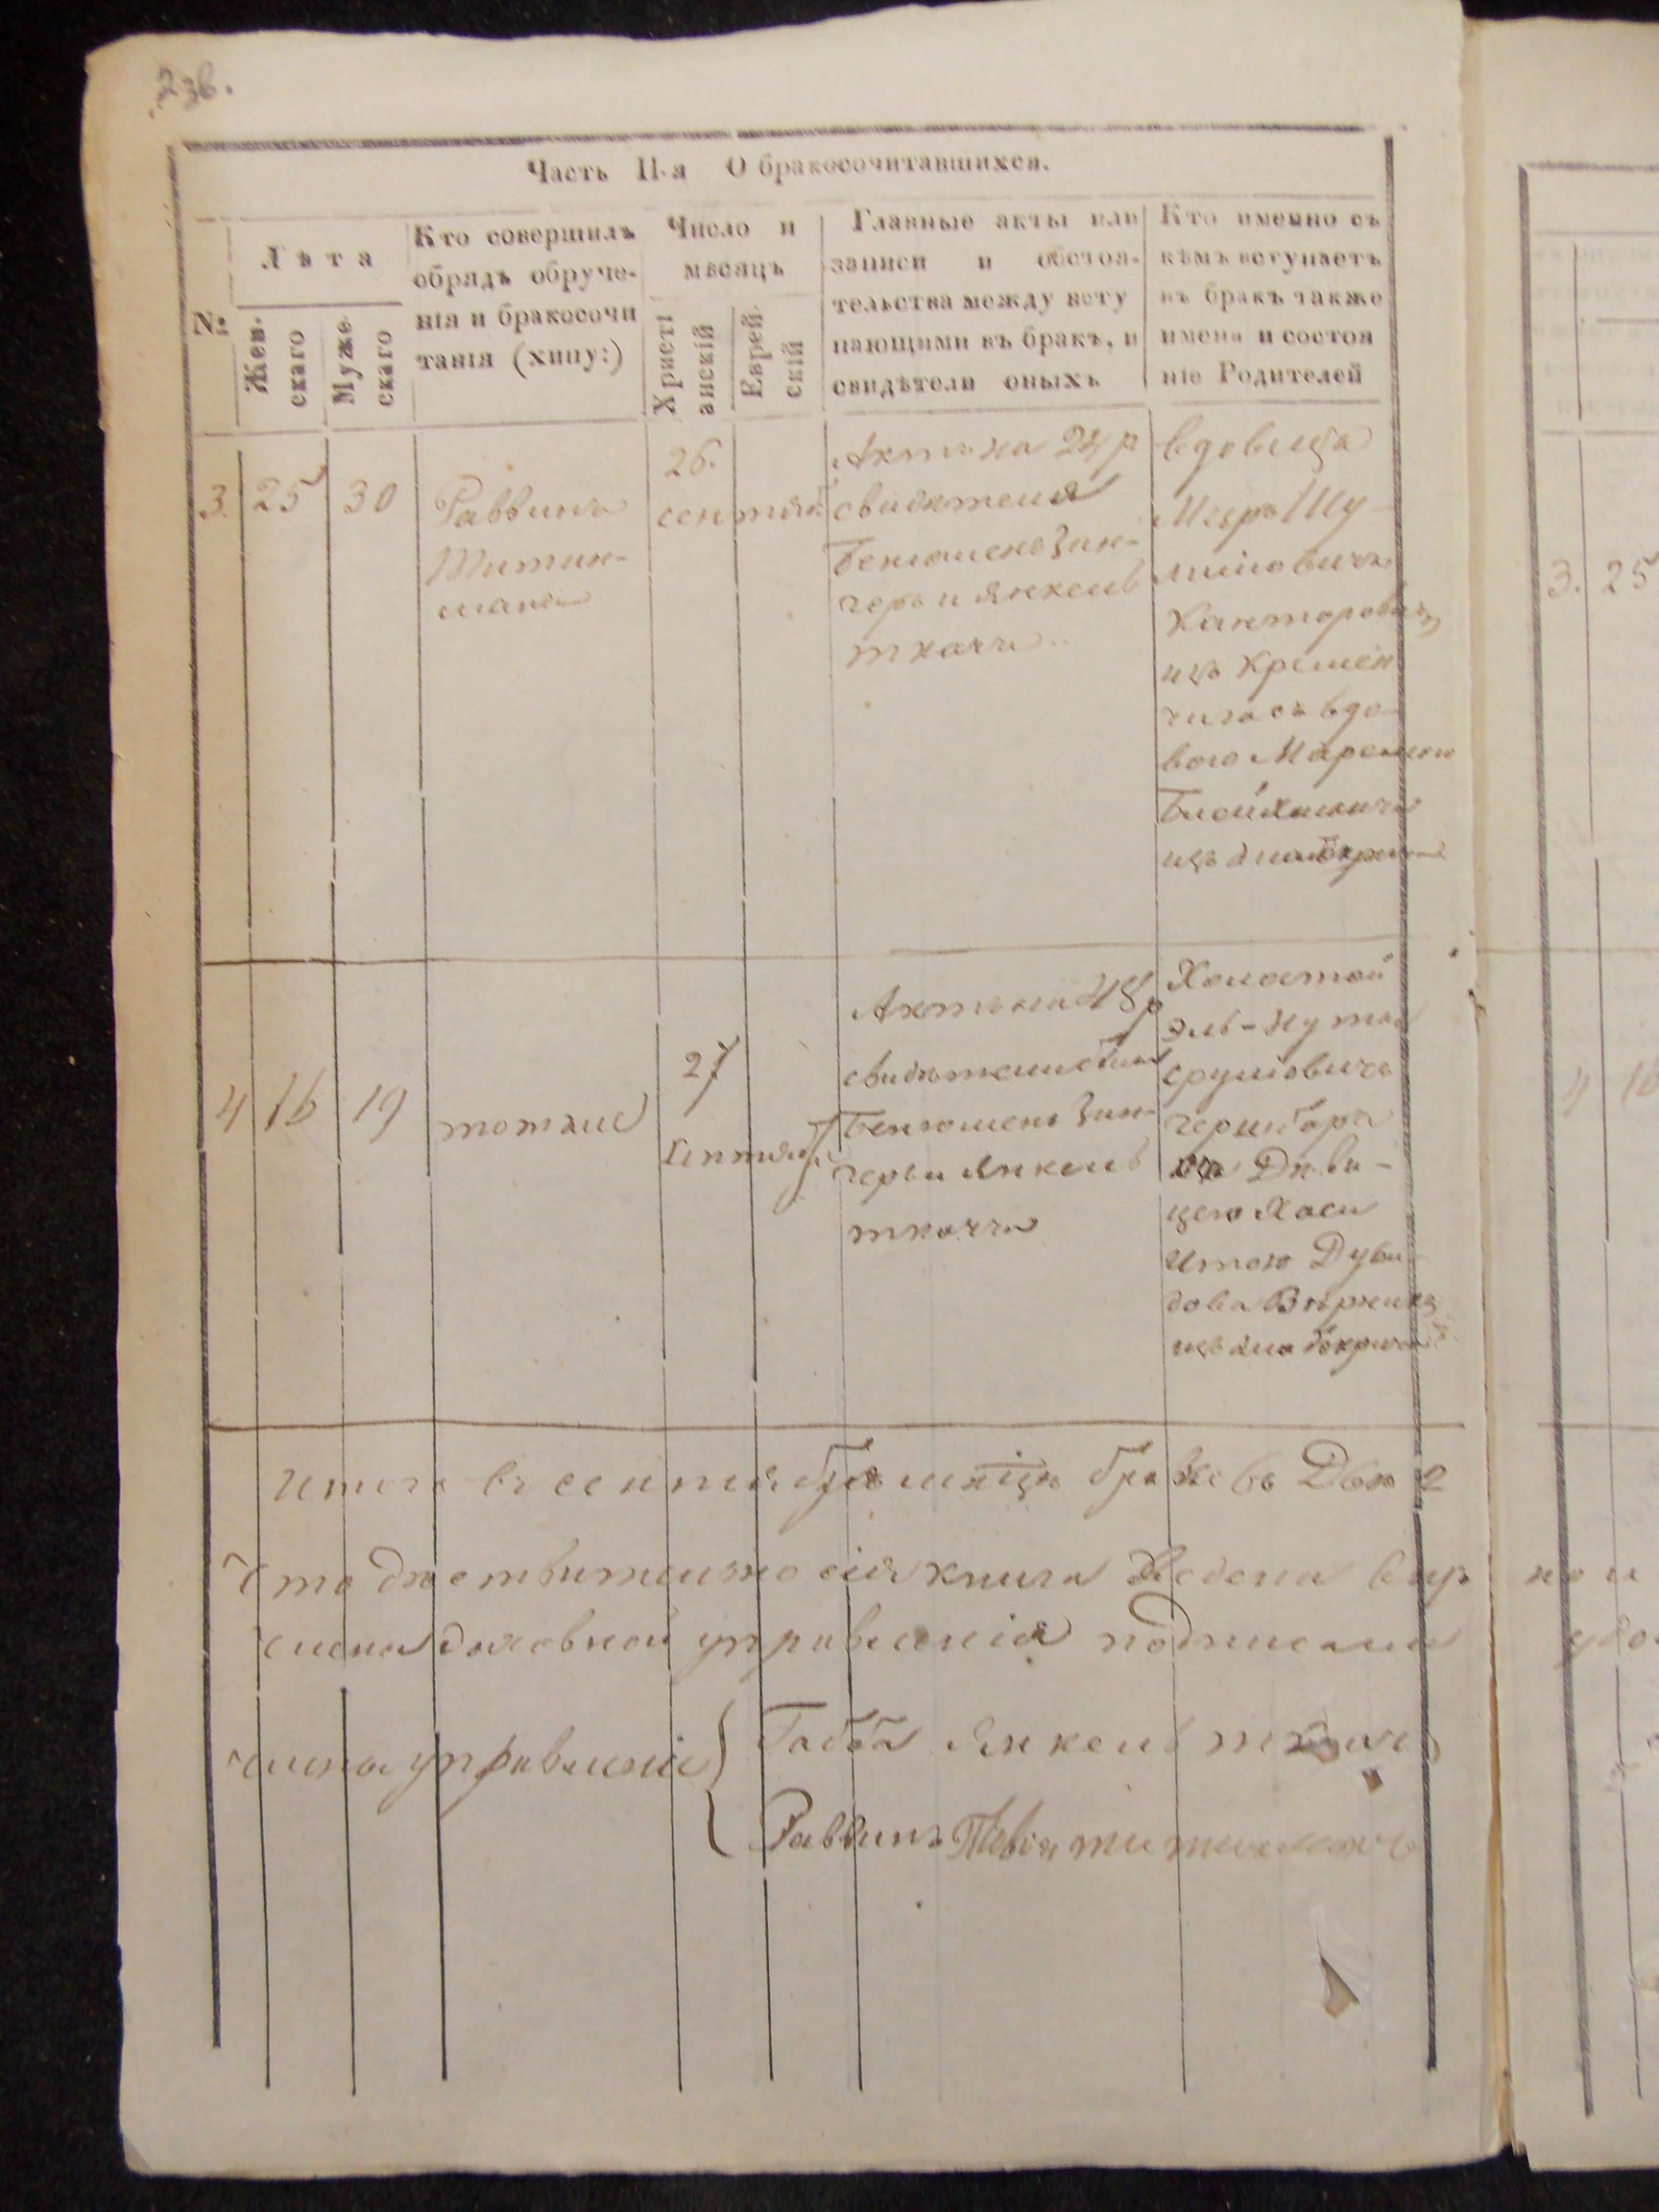 23в.
Часть II-я О бракосочитавшихся.
№
Лѣта
Жен-
скаго
Муже-
скаго
Кто совершилъ
обрядъ обруче-
нія и бракосочи
танія (хипу:)
Число и
мѣсяцъ
Христі
анскій
Еврей-
скій
Главные акты или
записи и обстоя-
тельства между всту
пающими въ бракъ, и
свидѣтели оныхъ
Кто именно съ
кѣмъ вступаетъ
въ бракъ также
имена и состоя
ніе Родителей
3.
25
30
Раввина
26.
сентяб
Актъ на 24 р
свидѣтеля
Бенюменъ Зин-
черъ и Янкель
ткачъ
вдовица
Канторович
изъ Кремен
чуга съ вдо-
вою
изъ
4
16
19
тотже
27
Сентяб
Актъ на 48 р
свидѣтели были
Бенюменъ Зин-
черъ и Янкель
ткачъ
Холостой
Эль-Нута
Срулiовичъ
съ Дѣви-
цею Хаси
Итою Дуви-
дова
изъ
Итого въ сентябрѣ мѣсяцѣ браковъ Два 2
Что дѣйствительно сія книга ведена вѣр но и
члены духовной управленія подписали
члены управленія
Габа Янкель ткачъ
Раввинъ
3. 25
4 16